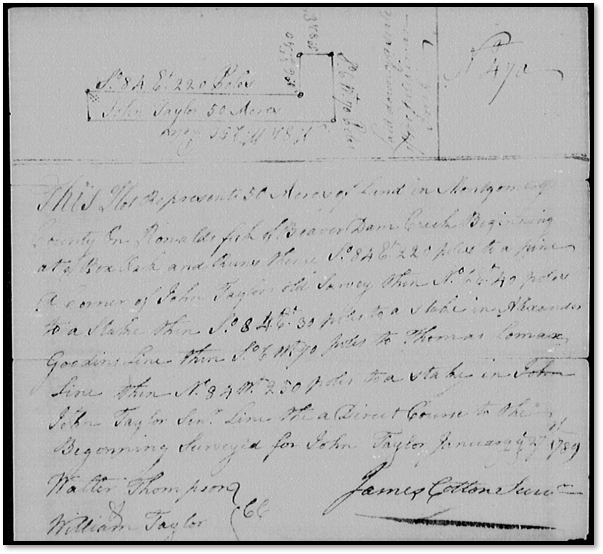 So. 84 Et. 220 Poles
John Taylor 50 Acres
No. 470
This Plot Represents 50 Acres of Land in Montgomery
County On Ronalds fck of Beaver Dam Creek Beginning
at a Box Oak and Runs thence So. 84 Et. 220 poles to a pine
A Corner of John Taylor old Survey then No. 6 Et. 40 poles
to a Stake then So. 84 Et. 30 poles to a stake in Alexander
Goodins Line then So. 6 Wt. 70 poles to Thomas Comax
Line then No. 84 Wt. 250 poles to a stake in John
John Taylor Senr. Line the a Direct Course to the
Begonning Survey'd for John Taylor January 27th 1789
Walter Thompson
James Cotton Surv.
William Taylor
CC